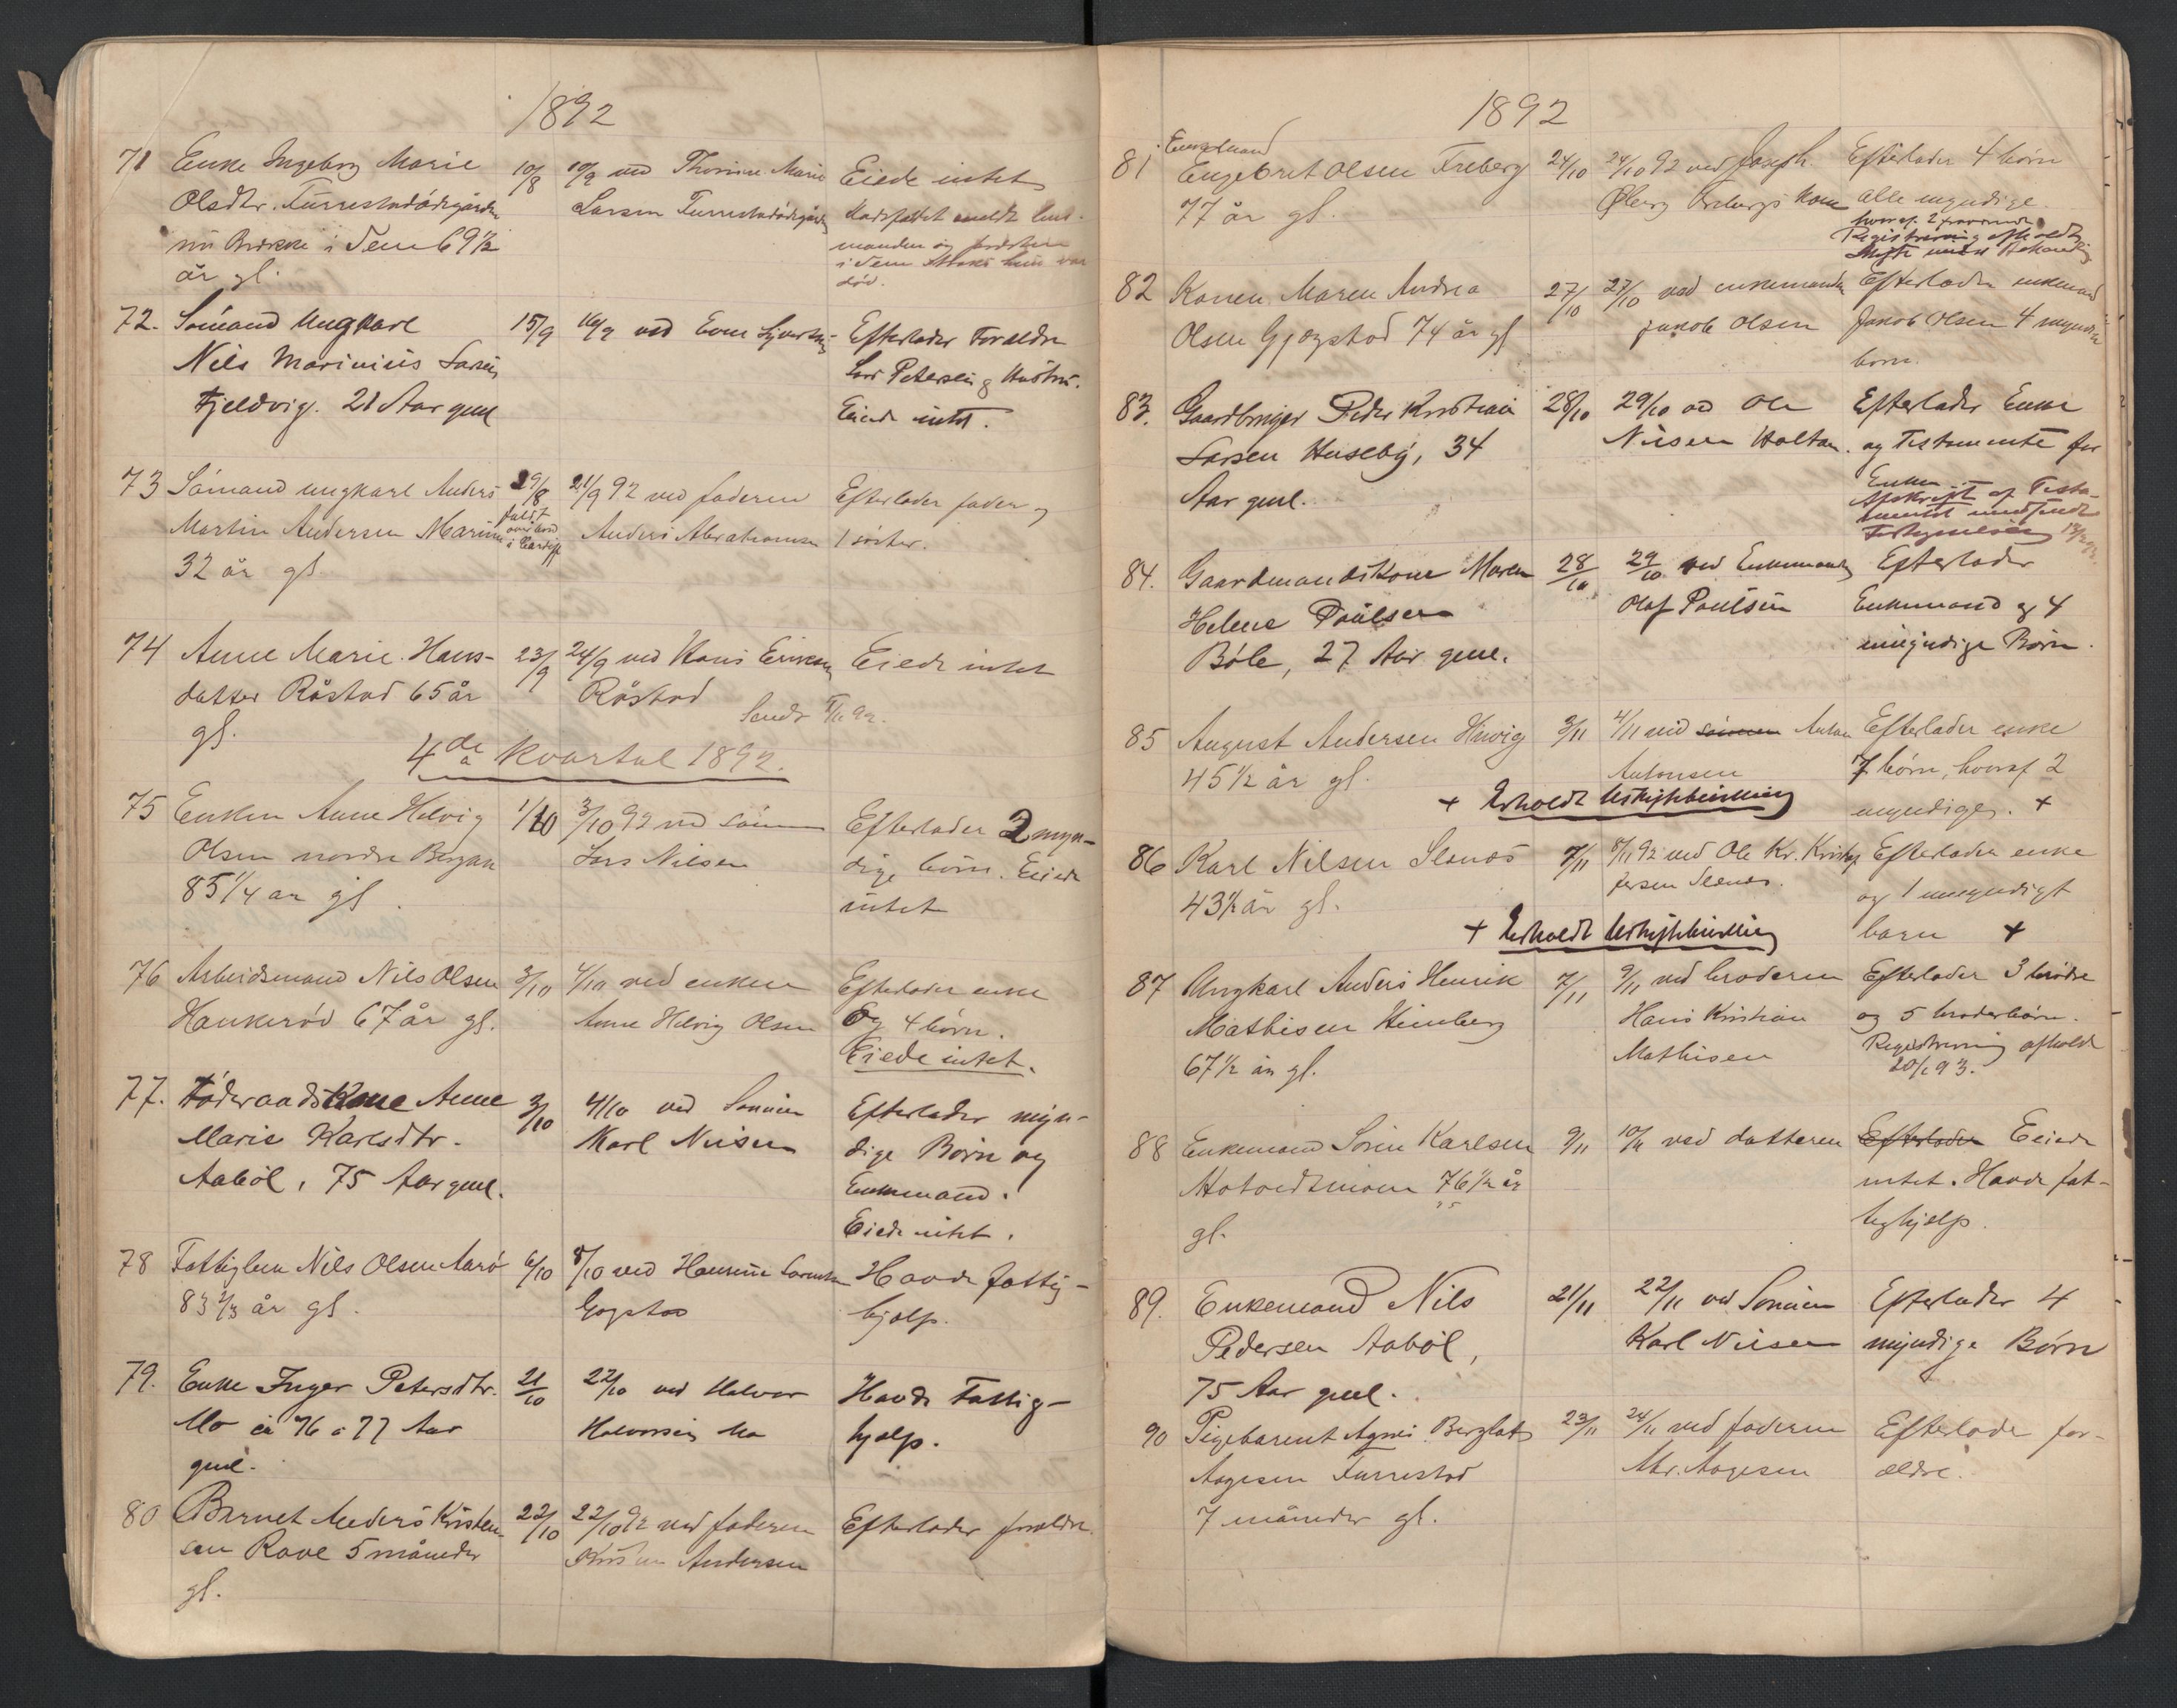 1892
71 Enke Ingeborg Marie 10/8 10/9 ved Thorine Marie Eiede intet
Olsdtr. Furrestadødegården Larsen Furrestadødegård Dødsfaldet meldt lens-
nu Brekke i Sem 69 1/2 manden og
år gl. i Sem hun var
død.
72. Sømand Ungkarl 15/9 16/9 ved Even Syvertsen Efterlader Forældre
Nils Marinius Larsen Lars Petersen & Hustru.
Fjeldvig. 21 Aar gml Eiede intet.
73 Sømand ungkarl Anders 29/8 21/9 92 ved faderen Efterlader fader og
faldt
over bord
i Cardiff
Martin Andersen Marum Anders Abrahamsen 1 søster.
32 år gl
74 Anne Marie Hans- 23/9 24/9 ved Hans Eriksen Eiede intet
datter Råstad 65 år Råstad
gl. Sendt 5/11 92.
4de kvartal 1892.
75 Enken Anne Helvig 1/10 3/10 92 ved sønnen Efterlader 2 myn-
Olsen nordre Bergan Lars Nilsen dige børn. Eiede
85 1/4 år gl. intet
76 Arbeidsmand Nils Olsen 3/10 4/10 ved enken Efterlader enke
Haukerød 67 år gl. Anne Helvig Olsen Og 4 børn.
Eiede intet.
77. Føderaadskone Anne 3/10 4/10 ved Sønnen Efterlader myn-
Marie Karlsdtr. Karl Nilsen dige Børn og
Aabøl, 75 Aar gml. Enkemand.
Eiede intet.
78 Fattiglem Nils Olsen Aarø 6/10 8/10 ved Hansine Larsen Havde fattig-
83 2/3 år gl. Gogstad hjælp.
79. Enke Inger Petersdtr. 21/10 22/10 ved Halvor Havde Fattig-
Mo ca 76 a 77 Aar Halvorsen Mo hjælp.
gml.
80 Barnet Anders Kristen- 22/10 22/10 92 ved faderen Efterlader forældre.
sen Rave 5 måneder Kristen Andersen
gl.
1892
Enkemand
81 Engebret Olsen Freberg 24/10 24/10 92 ved Joseph Efterlader 4 børn
77 år gl. Øberg Frebergs kone alle myndige.
hvoraf 2 fraværende
Registrering afholdt
82 Konen Maren Andrea 27/10 27/10 ved enkemanden Efterlader enkemand
Olsen Gjogstad 74 år gl Jakob Olsen Jakob Olsen 4 myndige
børn.
83. Gaardbruger Peder Kristian 28/10 29/10 ved Ole Efterlader Enke
Larsen Huseby, 34 Nilsen Haltan. og Testamente for
Aar gml. Enken.
Afskrift af Testa-
mentet medsendt
84. Gaardmandskone Maren 28/10 29/10 ved Enkemanden Efterlader
Helene Paulsen Olaf Paulsen Enkemand og 4
Bøle, 27 Aar gml. umyndige Børn.
85 August Andersen Hervig 3/11 4/11 ved sønnen Anton Efterlader enke
45 1/2 år gl. Antonsen 7 børn, hvoraf 2
+ Erholdt Uskiftebevilling myndige. +
86 Karl Nilsen Slanås 7/11 8/11 92 ved Ole Kr. Kristof Efterlader enke
43 1/2 år gl. fersen Slanås. og 1 umyndigt
+ Erholdt Uskiftebevilling barn +
87 Ungkarl Anders Henrik 7/11 9/11 ved broderen Efterlader 3 brødre
Mathisen Himberg Hans Kristian og 5 broderbørn.
67 1/2 år gl. Mathisen Registrering afholdt
20/1 93.
88 Enkemand Søren Karlsen 9/11 10/11 ved datteren Efterlader Eiede
76 1/2 år intet. Havde fat-
gl. tighjelp.
89. Enkemand Nils 21/11 22/11 ved Sønnen Efterlader 4
Pedersen Aabøl, Karl Nilsen myndige Børn
75 Aar gml.
90 Pigebarnet Agnes Bergljot 23/11 24/11 ved faderen Efterlader for-
Aagesen Furrestad Abr. Aagesen ældre.
7 måneder gl.